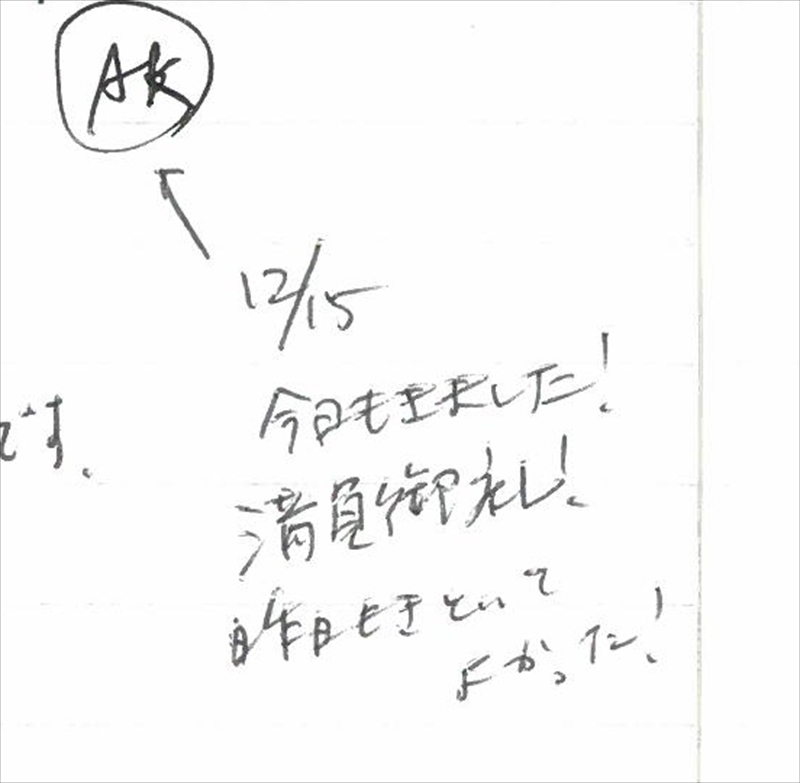 AK
12/15
今日もきました!
です。
満員御礼!
昨日もきといて
よかった!